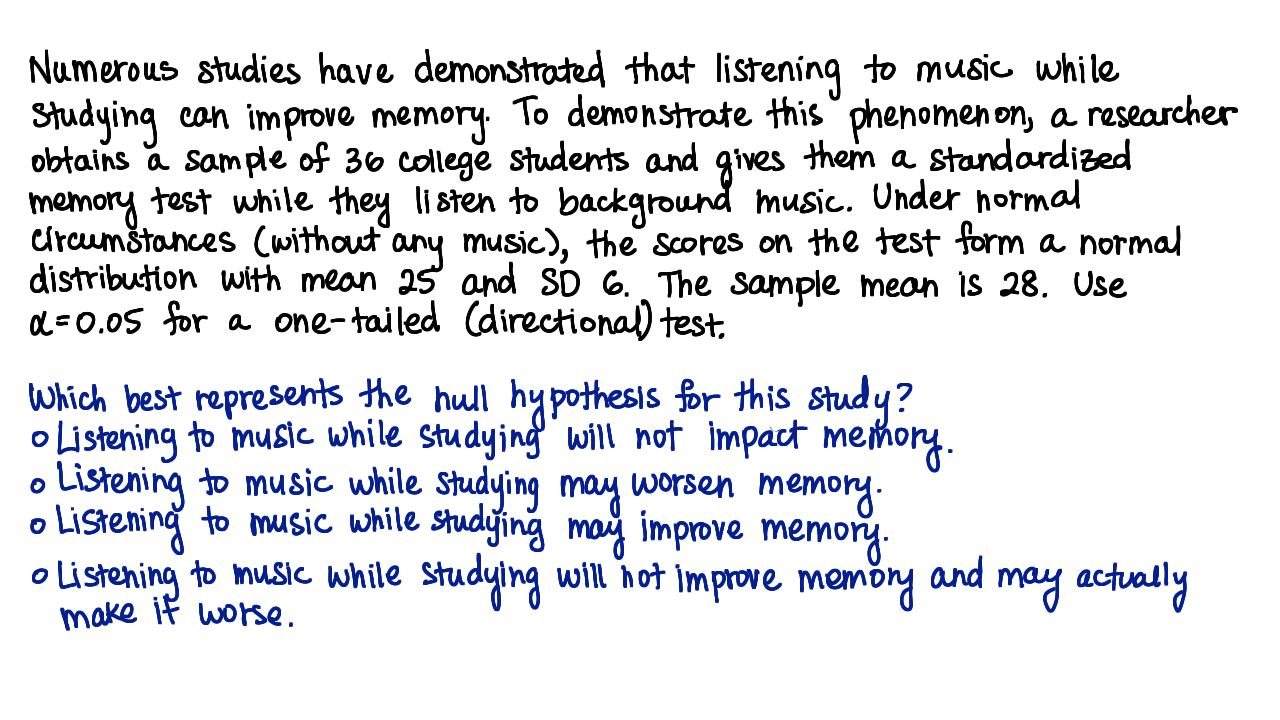 Numerous studies have demonstrated that listening to music while
studying can improve memory. To demonstrate this phenomenon, a researcher
obtains a sample of 36 college students and gives them a standardized
memory test while they listen to background music. Under normal
circumstances (without any music), the scores on the test form a normal
distribution with mean 25 and SD 6. The sample mean is 28. Use
α=0.05 for a one-tailed (directional) test.
Which best represents the null hypothesis for this study?
○ Listening to music while studying will not impact memory.
○ Listening to music while studying may worsen memory.
○ Listening to music while studying may improve memory.
○ Listening to music while studying will not improve memory and may actually
make it worse.